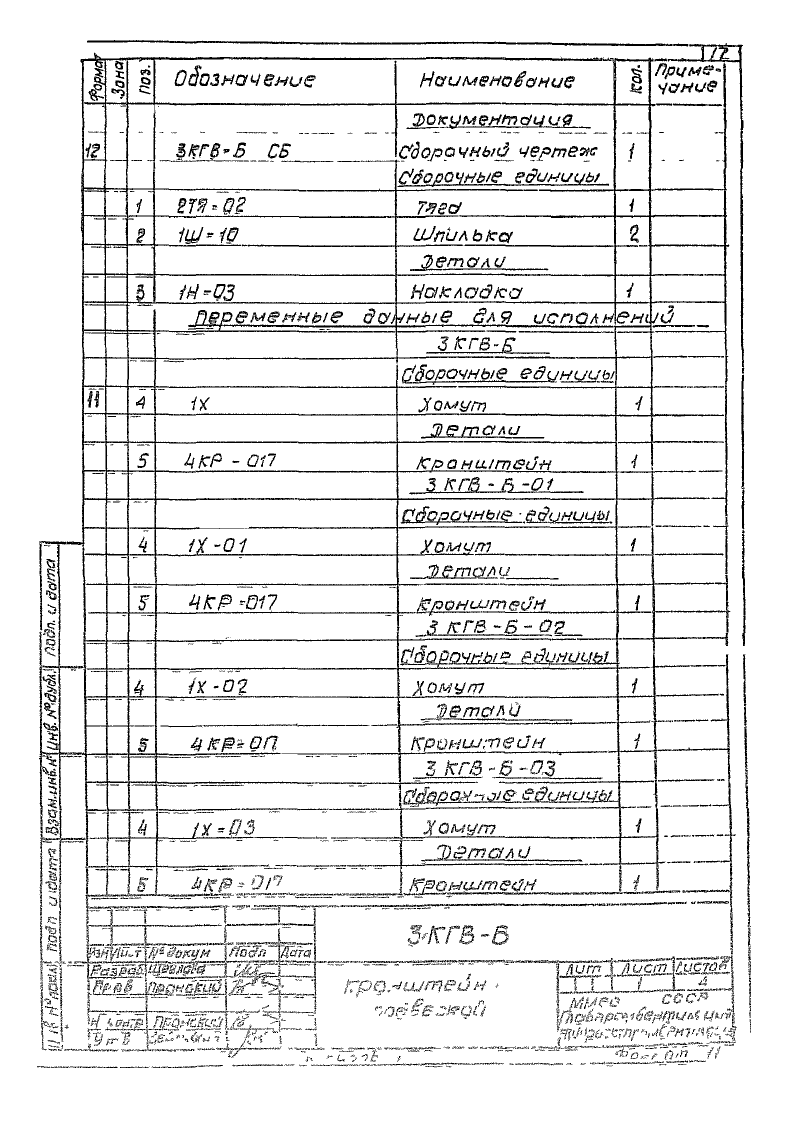 12
Формат Зона Поз. Обозначение Наименование Кол. Приме-
чание
Документация
12 3КГВ-Б СБ Сборочный чертеж 1
Сборочные единицы
1 2ТЯ-02 Тяга 1
2 1Ш-10 Шпилька 2
Детали
3 1Н-03 Накладка 1
Переменные данные для исполнений
3КГВ-Б
Сборочные единицы
11 4 1Х Хомут 1
Детали
5 4КР-017 Кронштейн 1
3КГВ-Б-01
Сборочные единицы
4 1Х-01 Хомут 1
Детали
5 4КР-017 Кронштейн 1
3КГВ-Б-02
Сборочные единицы
4 1Х-02 Хомут 1
Детали
5 4КР-017 Кронштейн 1
3КГВ-Б-03
Сборочные единицы
4 1Х-03 Хомут 1
Детали
5 4КР-017 Кронштейн 1
Подп. и дата
Инв. № дубл.
Взам. инв. №
Подп. и дата
Инв. № подл.
3КГВ-Б
Изм Лист № докум Подп Дата
Разраб Щеглова
Пров Пронский
Н. контр Пронский
Утв
Кронштейн
подвеской
Лит Лист Листов
1 4
ММСС СССР
Главпромвентиляция
Формат 11